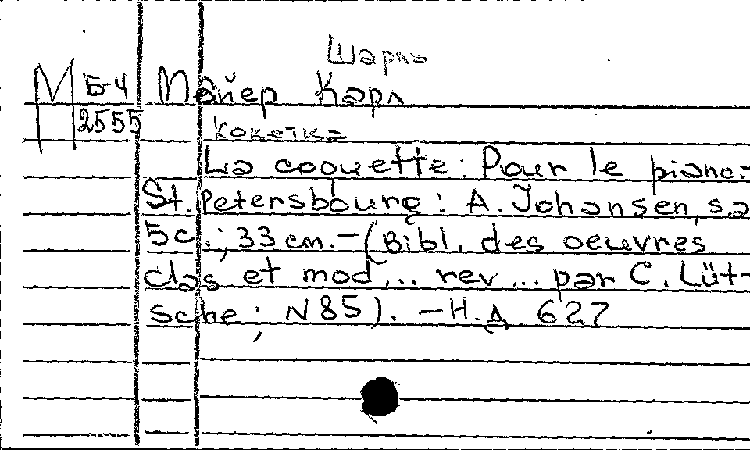 Шарль
М Б-4 Майер Карл
2555
Кокетка
La coquette: Pour le piano.-
St. Petersbourg: A. Johansen, s.a
5 с.; 33 cm. – (Bibl. des oeuvres
clas et mod... rev... par C. Lüt-
sche; N 85). – Н.д. 627